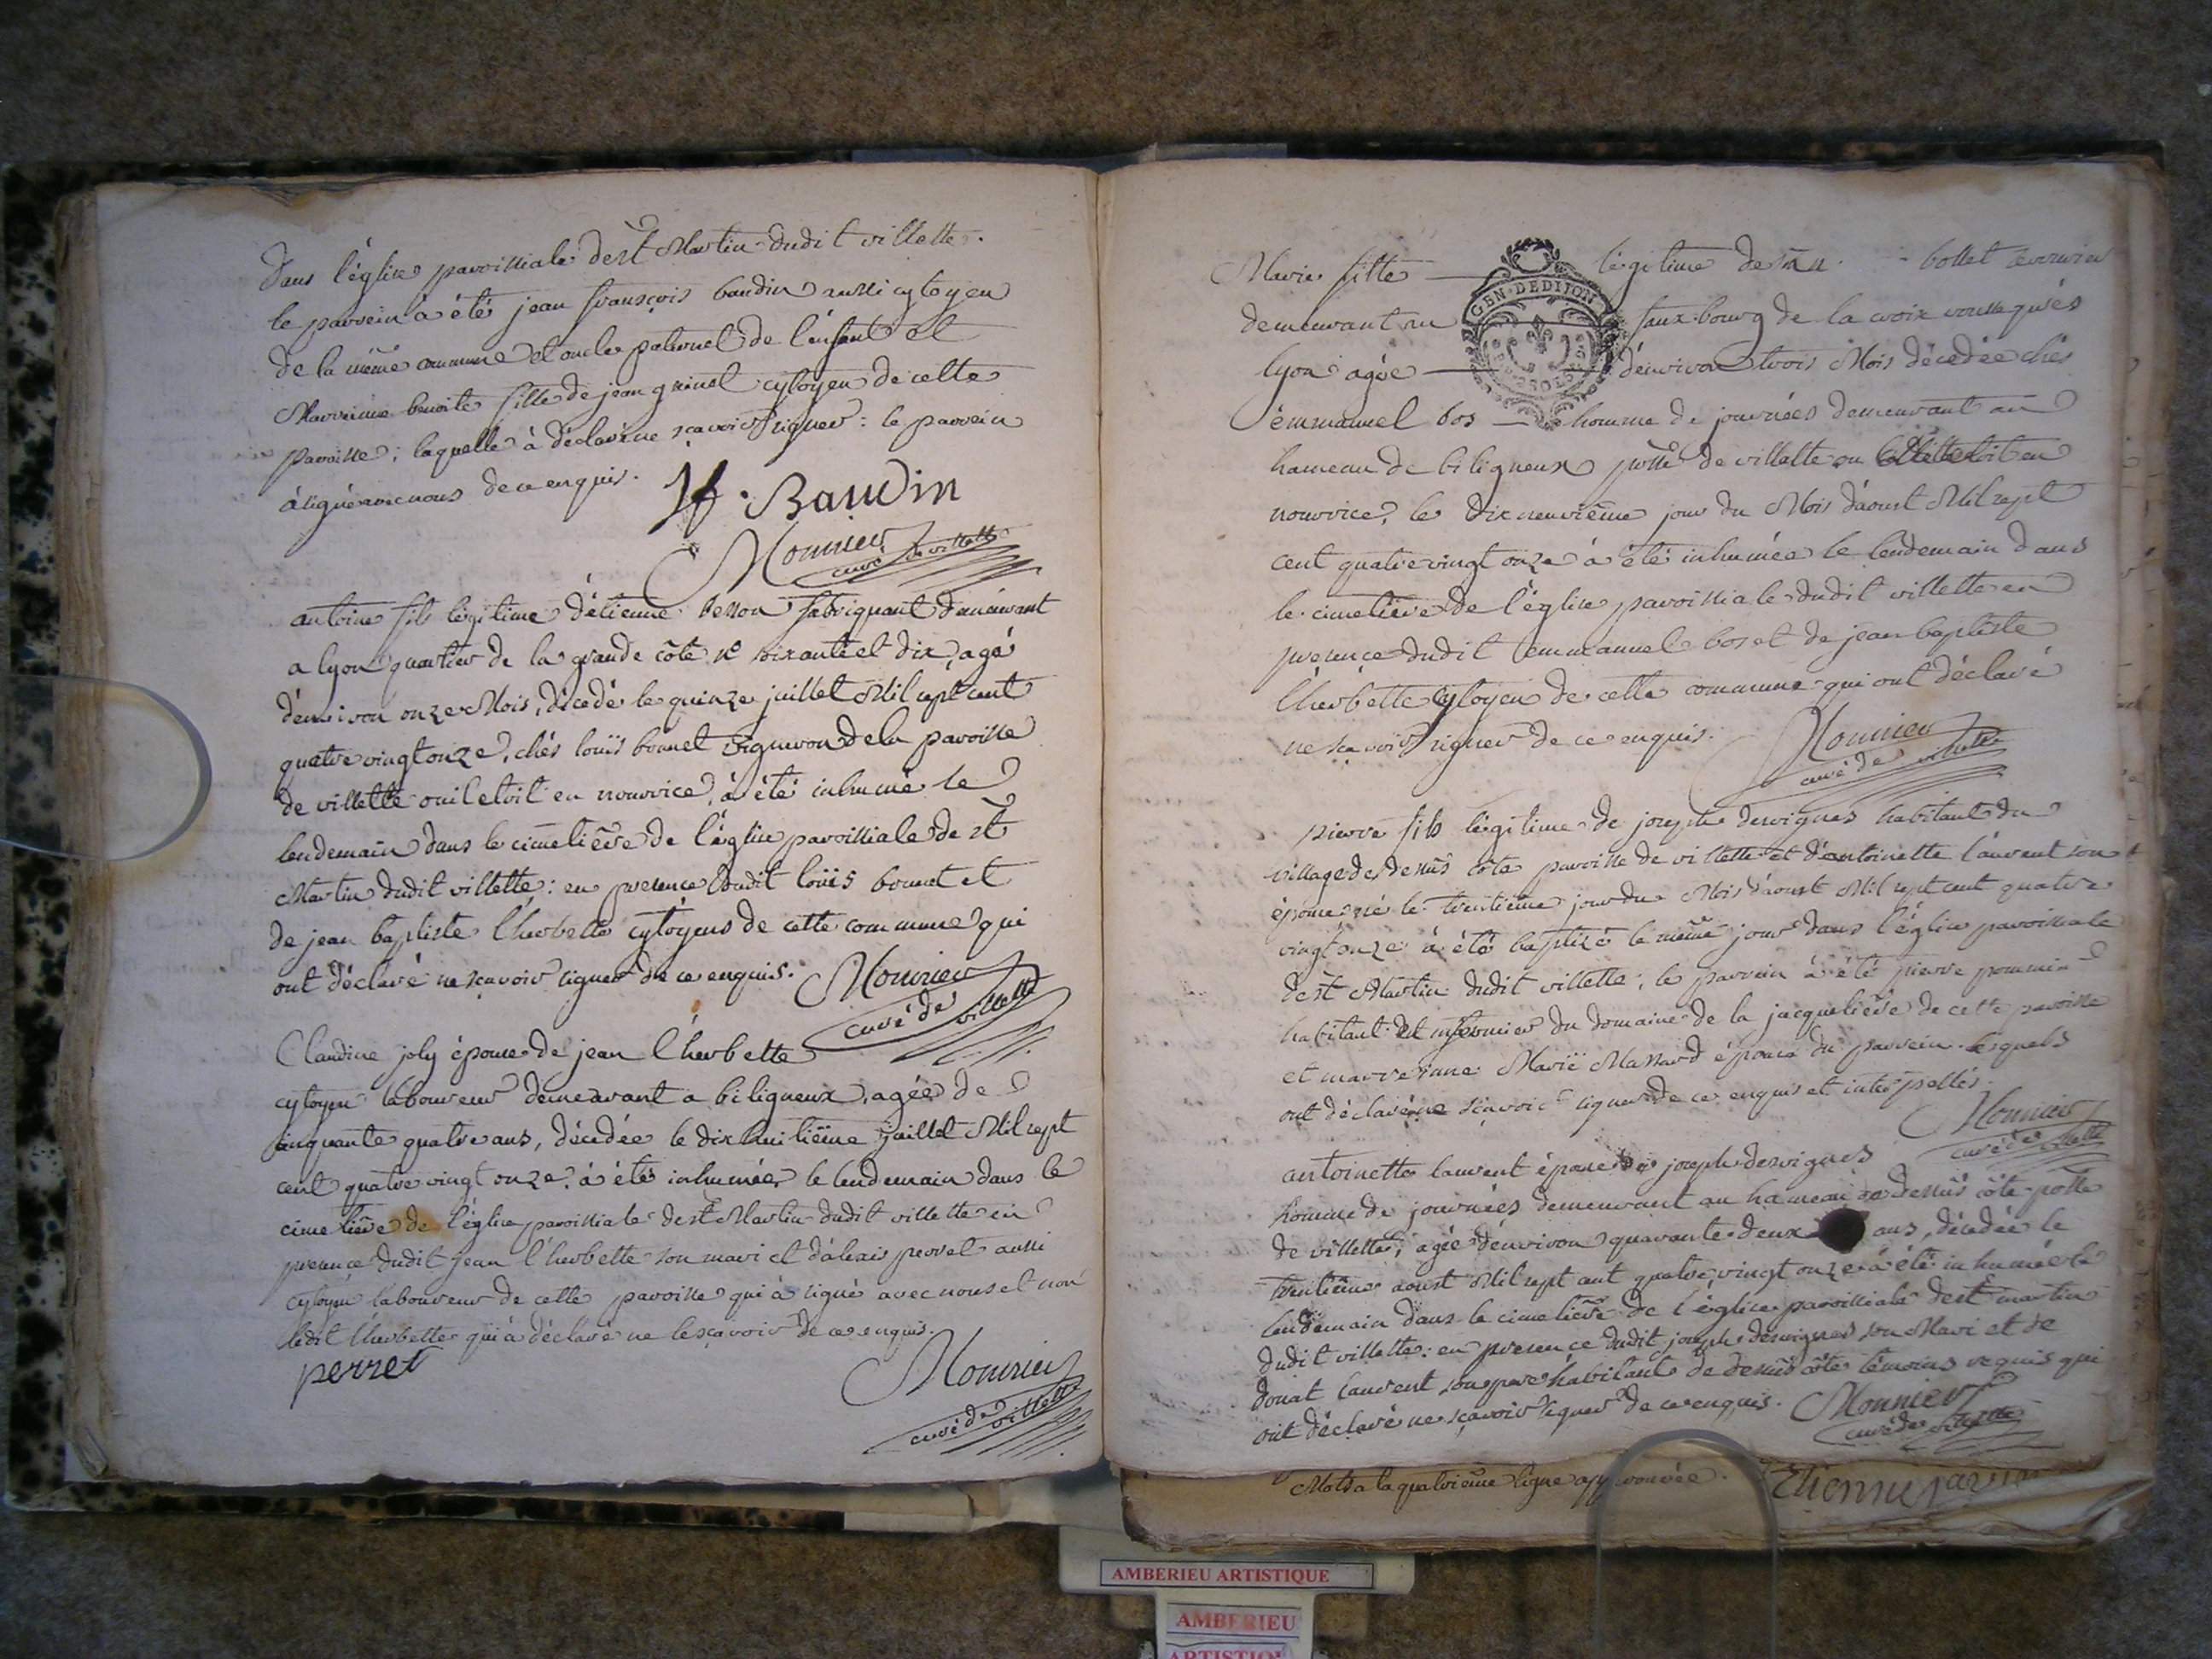 Dans l'églize paroissiale de st Martin dudit villette.
le parrein à été jean françois baudin aussi cytoyen
de la même commune et oncle paternel de l'enfant et
Marreinne benoite fille de jean grinel cytoyen de cette
paroisse ; laquelle à déclaré ne sçavoir signer : le parrein
à signé avec nous de ce enquis.
Jf. Baudin
Monnier
curé de villette
antoine fils légitime d'étienne besson fabriquant demeurant
a lyon quartier de la grande côte n° soixante et dix, agé
d'environ onze Mois, décedé le quinze juillet Mil sept cent
quatre vingt onze, chés loüis bonnet vigneron de la paroisse
de villette ou il etoit en nourrice, à été inhumé le
lendemain dans le cimetiere de l'église paroissiale de st
Martin dudit villette : en presence dudit loüis bonnet et
de jean baptiste l'herbette cytoyens de cette commune qui
ont déclaré ne sçavoir signer de ce enquis.
Monnier
curé de villette
Claudine joly épouse de jean l'herbette
cytoyen laboureur demeurant a biligneux, agée de
cinquante quatre ans, décedée le dix huitième juillet Mil sept
cent quatre vingt onze. à été inhumée le lendemain dans le
cimetière de l'église paroissiale de st Martin dudit villette en
presence dudit jean l'herbette son mari et d'alexis perret aussi
cytoyen laboureur de cette paroisse qui à signé avec nous et non
ledit l'herbette qui à déclaré ne le sçavoir de ce enquis.
perret
Monnier
curé de villette
Marie fille légitime de bollet
demeurant au faux-bourg de la croix rousse près
lyon agée d'environ trois Mois décedée chés
émmanuel bos homme de journées demeurant au
hameau de biligneux de villette ou etoit en
nourrice, le dix neuvième jour du Mois d'aoust Mil sept
cent quatre vingt onze à été inhumée le lendemain dans
le cimetière de l'église paroissiale dudit villette en
presence dudit emmanuel bos et de jean baptiste
l'herbette cytoyen de cette commune qui ont déclaré
ne sçavoir signer de ce enquis.
Monnier
curé de villette
pierre fils légitime de joseph desvignes habitant du
village de dessus côte paroisse de villette et d'antoinette laurent son
épouse né le trentième jour du Mois d'aoust Mil sept cent quatre
vingt onze à été baptizé le même jour dans l'église paroissiale
de st Martin dudit villette ; le parrein à été pierre pommin
habitant du domaine de la jacquelière de cette paroisse
et marreinne Marie Massard épouse du parrein. lesquels
ont déclaré ne sçavoir signer de ce enquis et interpellés.
Monnier
curé de villette
antoinette laurent épouse de joseph desvignes
homme de journées demeurant au hameau de dessus côte
de villette, agée d'environ quarante deux ans, décedée le
trentième aoust Mil sept cent quatre vingt onze à été inhumée le
lendemain dans le cimetière de l'église paroissiale de st martin
dudit villette : en presence dudit joseph desvignes son Mari et de
donat laurent son pere habitants de dessus côte témoins requis qui
ont déclaré ne sçavoir signer de ce enquis.
Monnier
curé de villette
Mots a la quatrième ligne approuvée.
GEN. DE DIJON
AMBERIEU ARTISTIQUE
AMBERIEU
ARTISTIQUE